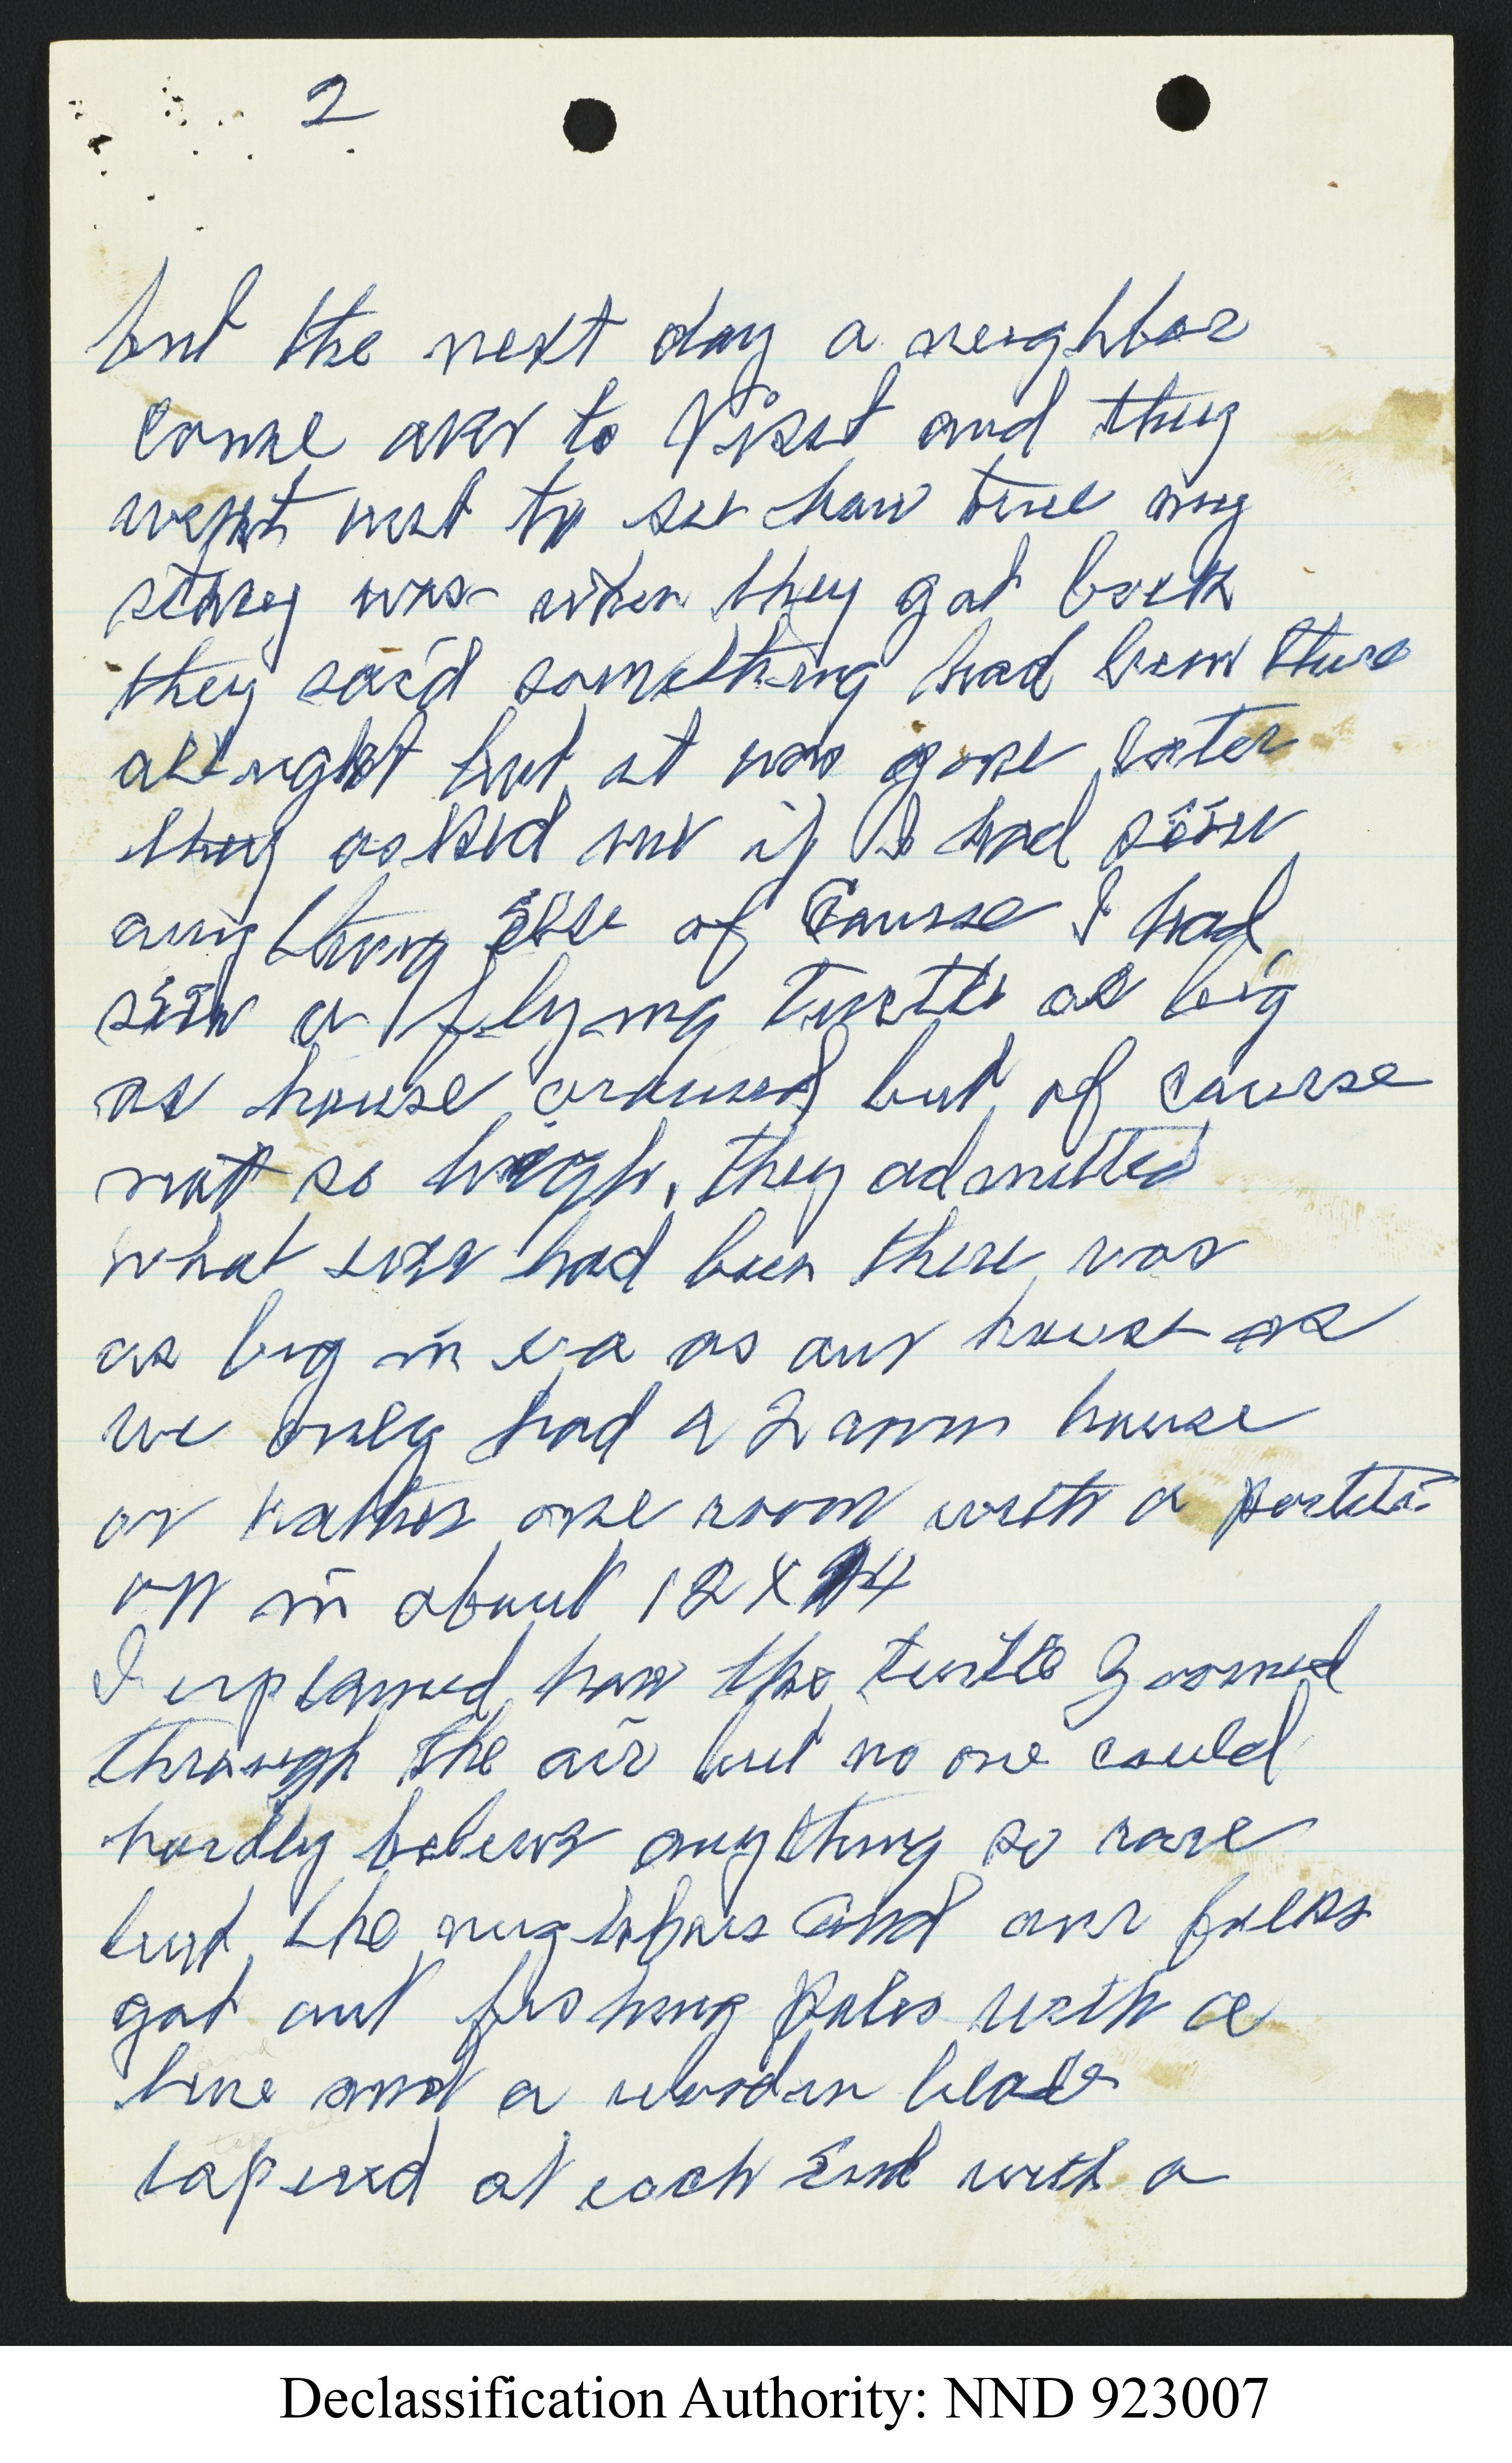 2
but the next day a neighbor
come over to visit and they
went out to see how true my
storey was when they got back
they said something had been there
allright but it was gone later
they asked me if I had seen
any thing else of Course I had
seen a flying turtle as big
as house around but of course
not so high, they admitted
what ever had been there was
as big in era as our house as
we only had a 2 room house
or rather one room with a partiti-
on in about 12 X 24
I explained how the turtle Zoomed
through the air but no one could
hardly beleive anything so rare
but the neighbors and our folks
got out fishing poles with a
line and a wooden blade
tapered at each end with a
Declassification Authority: NND 923007